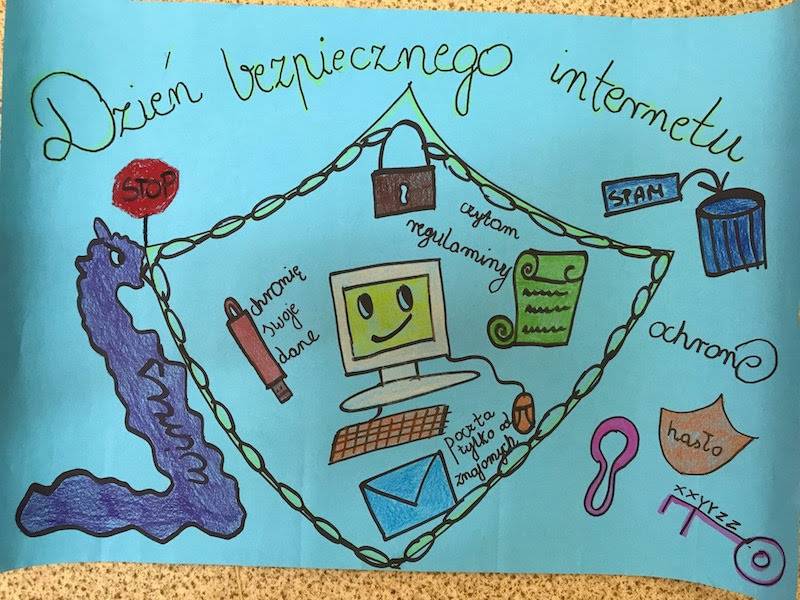 Dzień bezpiecznego internetu
STOP
SPAM
czytam
regulaminy
chronię
swoje
dane
ochron@
poczta
tylko od
znajomych
hasło
xxyyzz